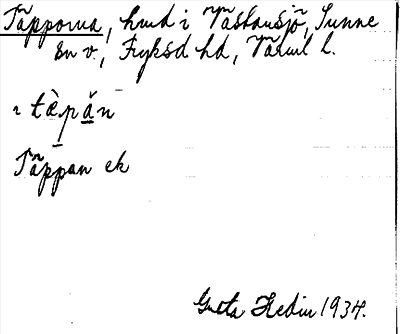 Täpporna, hmd i Västansjö, Sunne
sn v., Fryksd hd, Värml l.
i tæ̀pa̲n
Täppan ek
Greta Hedin 1934.